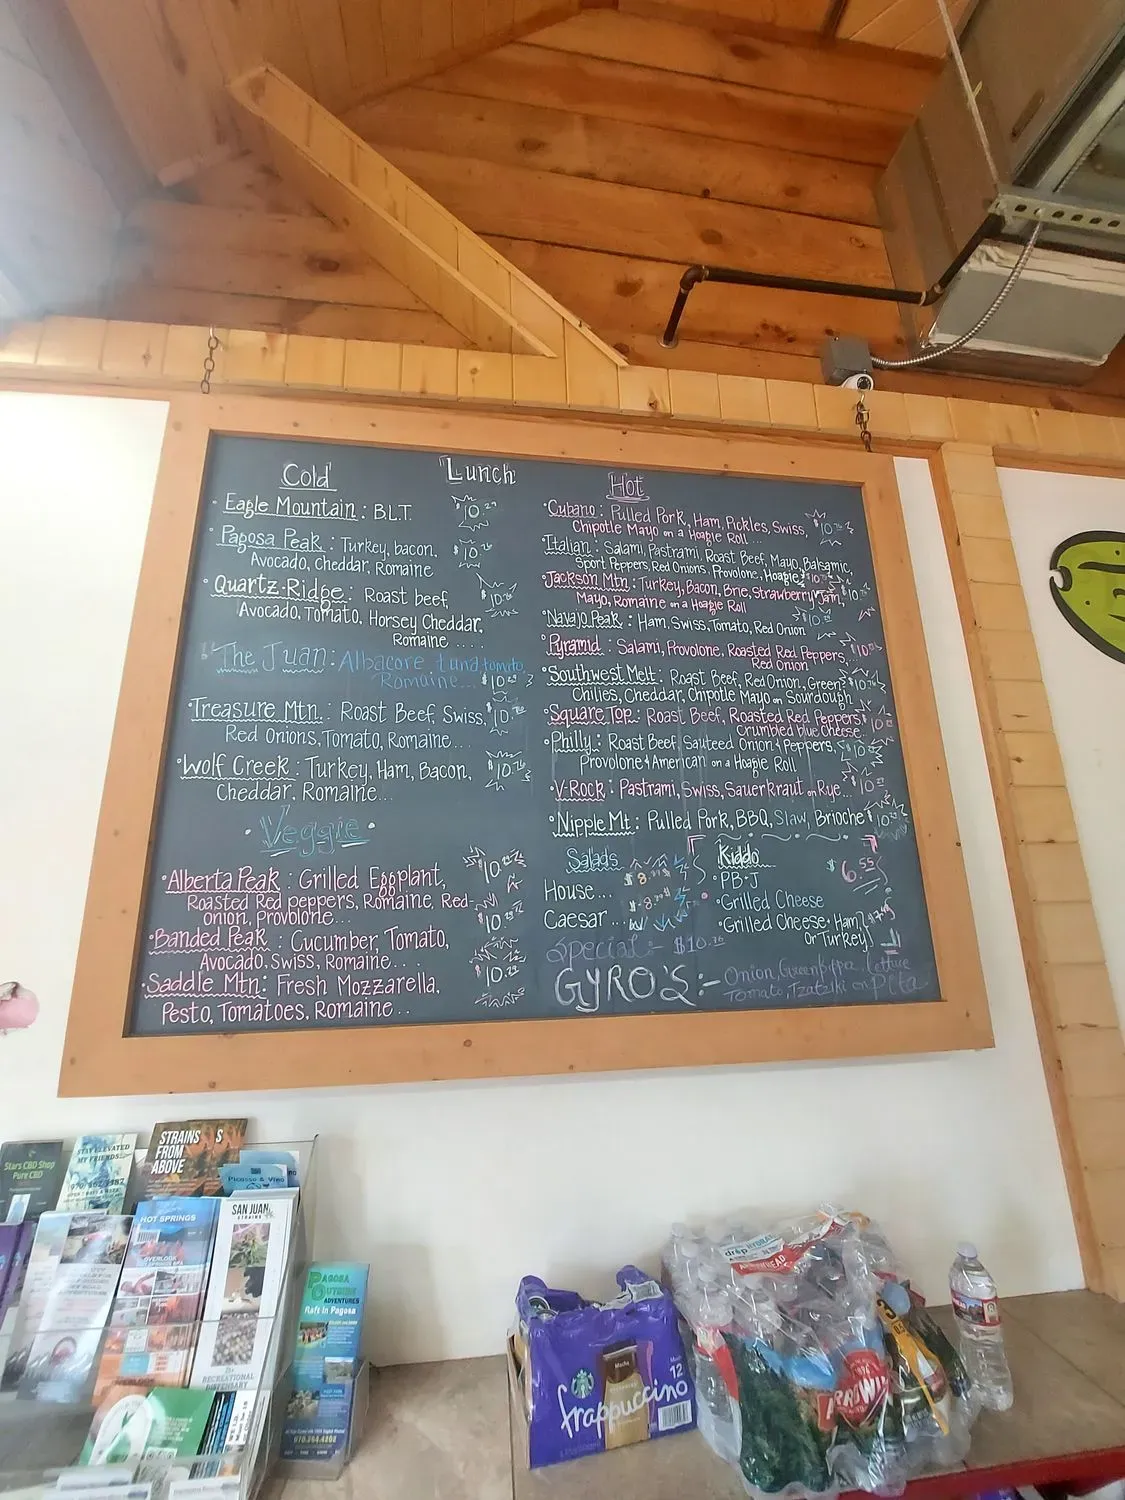 Lunch
Cold
Eagle Mountain: B.L.T.
Pagosa Peak: Turkey, bacon,
Avocado, Cheddar, Romaine
Quartz-Ridge: Roast beef,
Avocado, Tomato, Horsey Cheddar,
Romaine....
The Juan: Albacore tuna tomato,
Romaine...
Treasure Mtn.: Roast Beef, Swiss,
Red Onions, Tomato, Romaine...
Wolf Creek: Turkey, Ham, Bacon,
Cheddar, Romaine...
Veggie
Alberta Peak: Grilled Eggplant,
Roasted Red peppers, Romaine, Red-
onion, Provolone...
Banded Peak: Cucumber, Tomato,
Avocado, Swiss, Romaine...
Saddle Mtn: Fresh Mozzarella,
Pesto, Tomatoes, Romaine..
Hot
Cubano: Pulled Pork, Ham, Pickles, Swiss,
Chipotle Mayo on a Hoagie Roll...
Italian: Salami, Pastrami, Roast Beef, Mayo, Balsamic,
Sport Peppers, Red Onions, Provolone, Hoagie
Jackson Mtn: Turkey, Bacon, Brie, Strawberry Jam,
Mayo, Romaine on a Hoagie Roll
Navajo Peak: Ham, Swiss, Tomato, Red Onion
Pyramid: Salami, Provolone, Roasted Red Peppers,
Red Onion
Southwest Melt: Roast Beef, Red Onion, Green
Chilies, Cheddar, Chipotle Mayo on Sourdough
Square Top: Roast Beef, Roasted Red Peppers
Crumbled blue Cheese
Philly: Roast Beef, Sauteed Onion & Peppers,
Provolone & American on a Hoagie Roll
V-Rock: Pastrami, Swiss, Sauerkraut on Rye...
Nipple Mt: Pulled Pork, BBQ, Slaw, Brioche
Salads
House...
Caesar...
Kiddo
$6.55
PB+J
Grilled Cheese
Grilled Cheese, Ham
Or Turkey
Special:- $10.76
GYRO'S:- Onion, Greenpepper, lettuce
Tomato, Tzatziki on pita
Stars CBD Shop
Pure CBD
STAY ELEVATED
MY FRIENDS
STRAINS
FROM
ABOVE
Picasso & Vino
HOT SPRINGS
OVERLOOK
SAN JUAN
STRAINS
RECREATIONAL
DISPENSARY
PAGOSA
OUTSIDE
ADVENTURES
Raft in Pagosa
970.264.4202
Mocha
12
frappuccino
ARROWHEAD